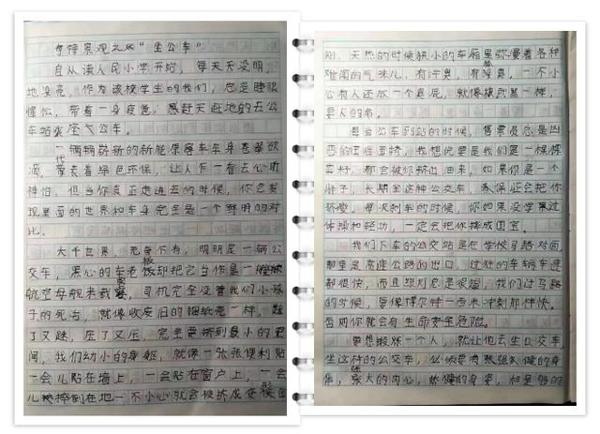 奇特景观之“坐公车”
自从读人民小学开始，每天天没明，
地没亮，作为该校学生的我们，总是睡眼
惺忪，带着一身疲惫，急赶天赶地的去公
车站坐公车。
一辆辆崭新的新能源客车车身卷着欲
滴，带表着绿色环保，让人乍一看去心旷
神怡。但当你真正走进去的时候，你会发
现里面的世界和车身完全是一个鲜明的对
比。
大千世界，无奇不有，明明是一辆公
交车，黑心的车老板却把它当作是一艘
航空母舰来载客，司机完全没管我们小孩
子的死活，就像收废旧的捆纸壳一样，
了又踩，压了又压，完全要挤到最小的空
间，我们幼小的身躯，就像一张张便利贴
一会儿贴在墙上，一会贴在窗户上，一会
儿摔倒在地一不小心就会被挤成变
刚。天热的时候狭小的车厢里弥漫着各种
难闻的气味儿，有汗臭，有，一不小
心有人还放一个臭屁，就像摸武里一样，
要人的命。
每当公车到站的时候，售票员总是凶
神恶煞，我想说要是我们是一棵棵
菜籽，都会被你挤出油来，如果你是一个
胖子，长期坐这种公交车，我保证会把你
挤瘦。每次刹车的时候，你如果没学果过
体操和轻功，一定会把你摔成国宝。
我们下车的公交站是在学校马路对面
那里是高速公路的出口，过往的车辆车速
都很快，而且坡度是很陡，我们过马路
的时候，要像博尔特一百米冲刺那样快。
否则你就会有生命安全危险。
要想锻炼一个人，就让他去坐公交车
坐这种的公交车，必须要有强健的身
体，强大的内心，矫健的身姿，和足够的